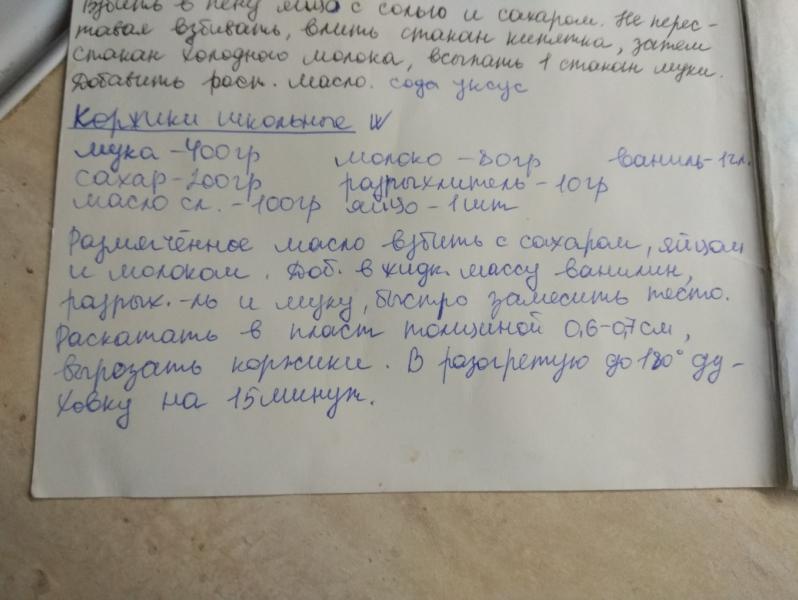 Взбить в пену яйцо с солью и сахаром. Не перес-
тавая взбивать, влить стакан кипятка, затем
стакан холодного молока, всыпать 1 стакан муки.
Добавить раст. масло. сода уксус
Коржики школьные
мука - 400гр молоко - 80гр ваниль - 1чл.
сахар - 200гр разрыхлитель - 10гр
масло сл. - 100гр яйцо - 1шт
Размягчённое масло взбить с сахаром, яйцом
и молоком. Доб. в жидк. массу ванилин,
разрых.-ль и муку, быстро замесить тесто.
Раскатать в пласт толщиной 0,6-0,7см,
вырезать коржики. В разогретую до 180° ду-
ховку на 15 минут.